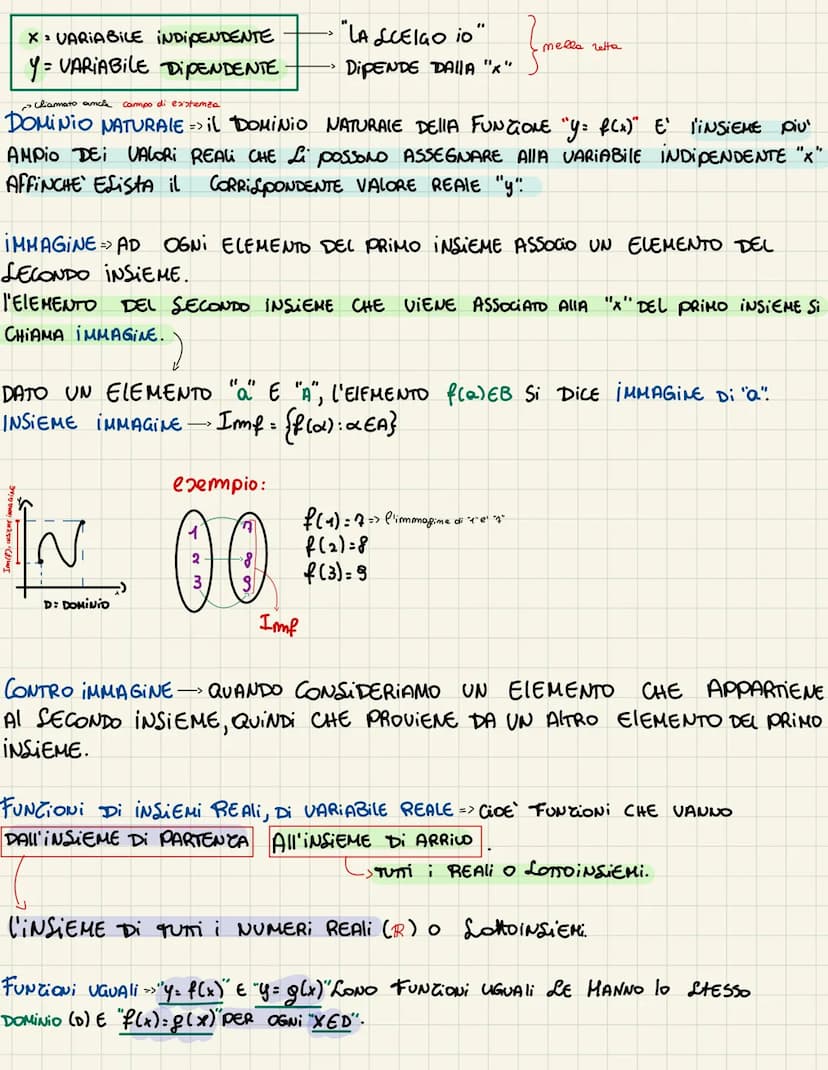 x = VARIABILE INDIPENDENTE → "LA SCELGO IO"
y = VARIABILE DIPENDENTE → DIPENDE DALLA "x"
nella retta
→ chiamato anche campo di esistenza
DOMINIO NATURALE => il DOMINIO NATURALE DELLA FUNZIONE "y= f(x)" E' l'INSIEME PIU'
AMPIO DEI VALORI REALI CHE SI POSSONO ASSEGNARE AllA VARIABILE INDIPENDENTE "x"
AFFINCHE' ESISTA il CORRISPONDENTE VALORE REALE "y".
IMMAGINE => AD OGNI ELEMENTO DEL PRIMO INSIEME ASSOCIO UN ELEMENTO DEL
SECONDO INSIEME.
l'ELEMENTO DEL SECONDO INSIEME CHE VIENE ASSOCIATO ALLA "x" DEL PRIMO INSIEME SI
CHIAMA IMMAGINE.
DATO UN ELEMENTO "a" E "A", L'ELEMENTO f(a)∈B SI DICE IMMAGINE DI "a".
INSIEME IMMAGINE → Imf = {f(a): a∈A}
esempio:
Im(f), insieme immagine
y
x
D= DOMINIO
1 7
2 8
3 9
Imf
f(1)=7 => l'immagine di "1" e' "7"
f(2)=8
f(3)=9
CONTRO IMMAGINE → QUANDO CONSIDERIAMO UN ELEMENTO CHE APPARTIENE
Al SECONDO INSIEME, QUINDI CHE PROVIENE DA UN ALTRO ELEMENTO DEL PRIMO
INSIEME.
FUNZIONI DI INSIEMI REALI, DI VARIABILE REALE => CIOE' FUNZIONI CHE VANNO
DALL'INSIEME DI PARTENZA All'INSIEME DI ARRIVO.
→ TUTTI I REALI O SOTTOINSIEMI.
l'INSIEME DI TUTTI I NUMERI REALI (ℝ) O SOTTOINSIEMI.
FUNZIONI UGUALI => "y= f(x)" E "y= g(x)" SONO FUNZIONI UGUALI SE HANNO lo STESSO
DOMINIO (D) E "f(x)=g(x)" PER OGNI "X∈D".